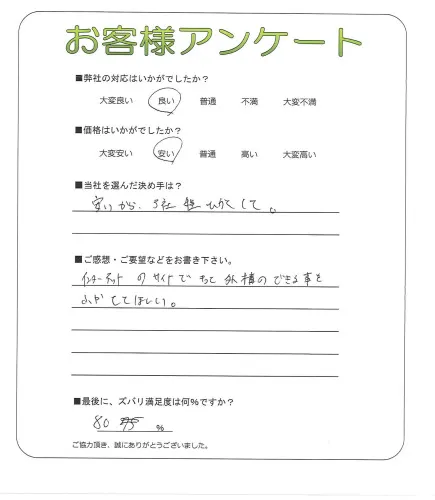 お客様アンケート
■弊社の対応はいかがでしたか？
大変良い 良い 普通 不満 大変不満
■価格はいかがでしたか？
大変安い 安い 普通 高い 大変高い
■当社を選んだ決め手は？
安いから、3社 してして。
■ご感想・ご要望などをお書き下さい。
インターネット のサイトで もっと 外構のできる事を
してほしい。
■最後に、ズバリ満足度は何％ですか？
80 %
ご協力頂き、誠にありがとうございました。